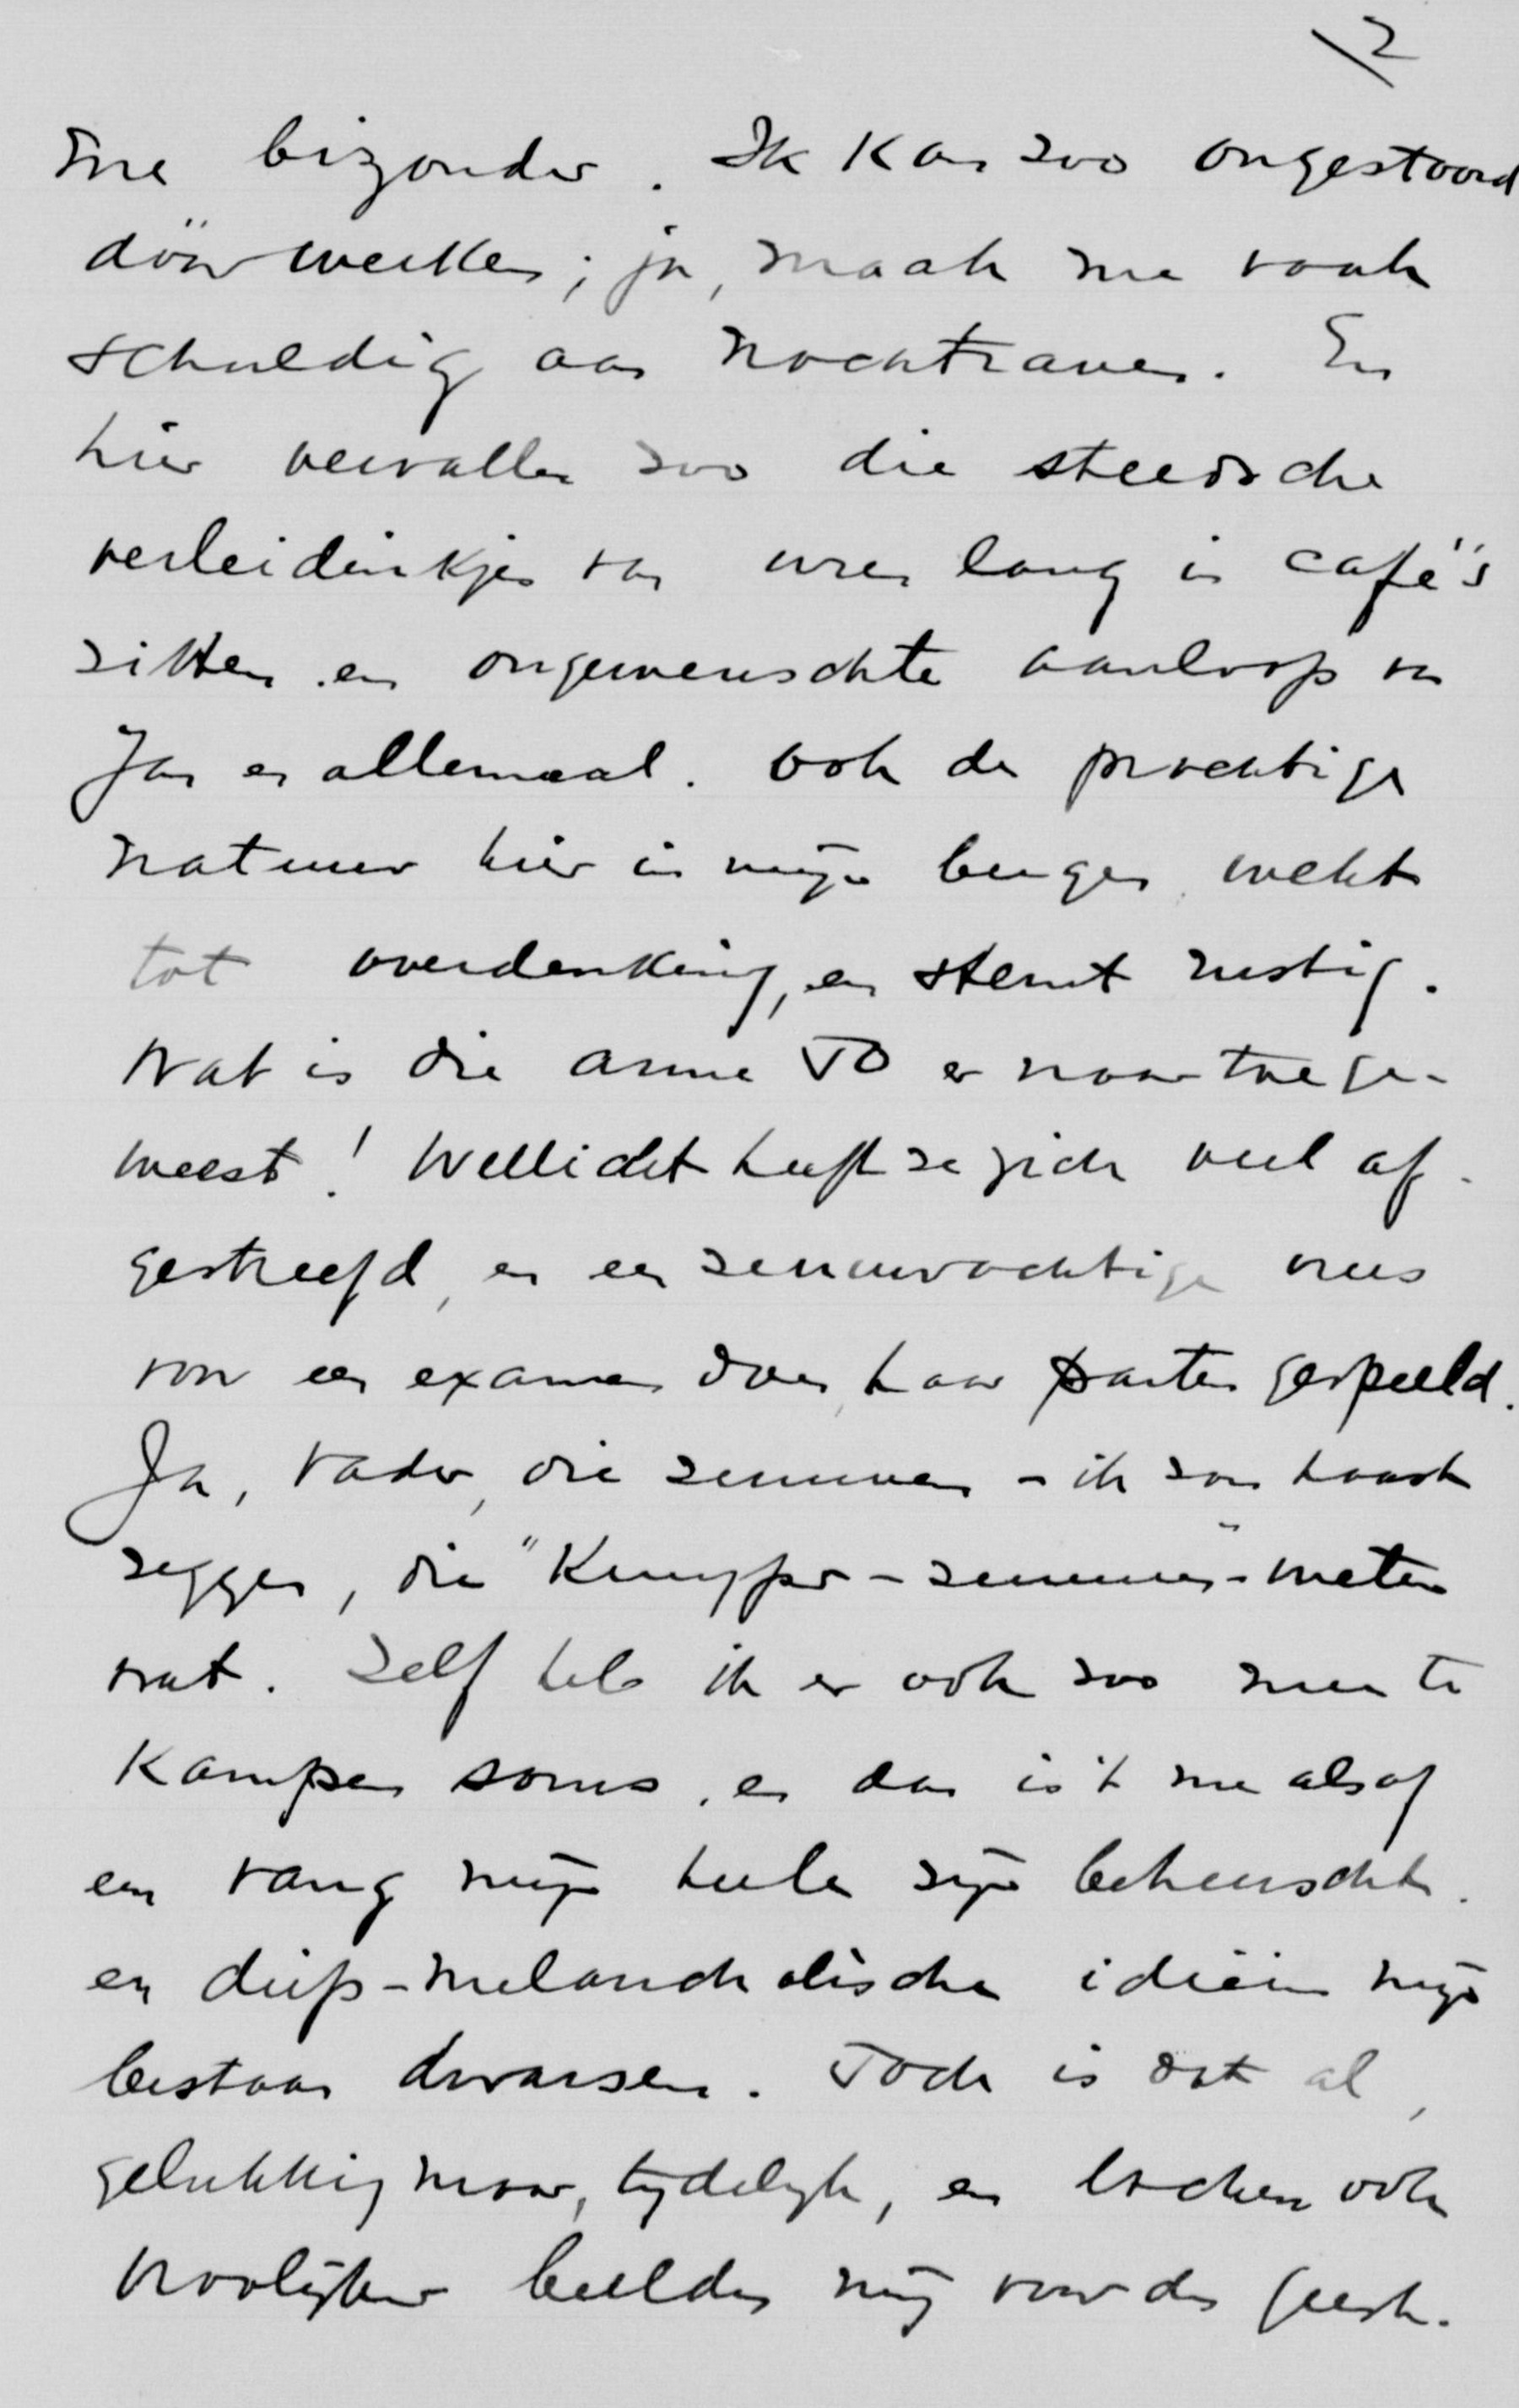 2
me bizonder. Ik kan zoo ongestoord
dóórwerken; ja, maak me vaak
schuldig aan nachtraven. En
hier vervallen zoo die steedsche
verleidinkjes van uren lang in café's
zitten en ongewenschte aanloop van
Jan en allemaal. Ook de prachtige
natuur hier in mijn bergen wekt
tot overdenking, en stemt rustig.
Wat is die arme To er naar toe ge-
weest! Wellicht heeft ze zich veel af-
gestreefd, en een zenuwachtige vrees
voor een examen doen haar parten gespeeld.
Ja, vader, die zenuwen - ik zou haast
zeggen, die "Kuyper-zenuwen" - weten
wat. Zelf heb ik er ook zoo mee te
kampen soms, en dan is 't me alsof
een vang mijn heele zijn beheerscht
en diep-melancholische ideeën mijn
bestaan dwarsen. Toch is dat al,
gelukkig maar, tijdelijk, en lachen ook
vroolijker beelden mij voor den geest.